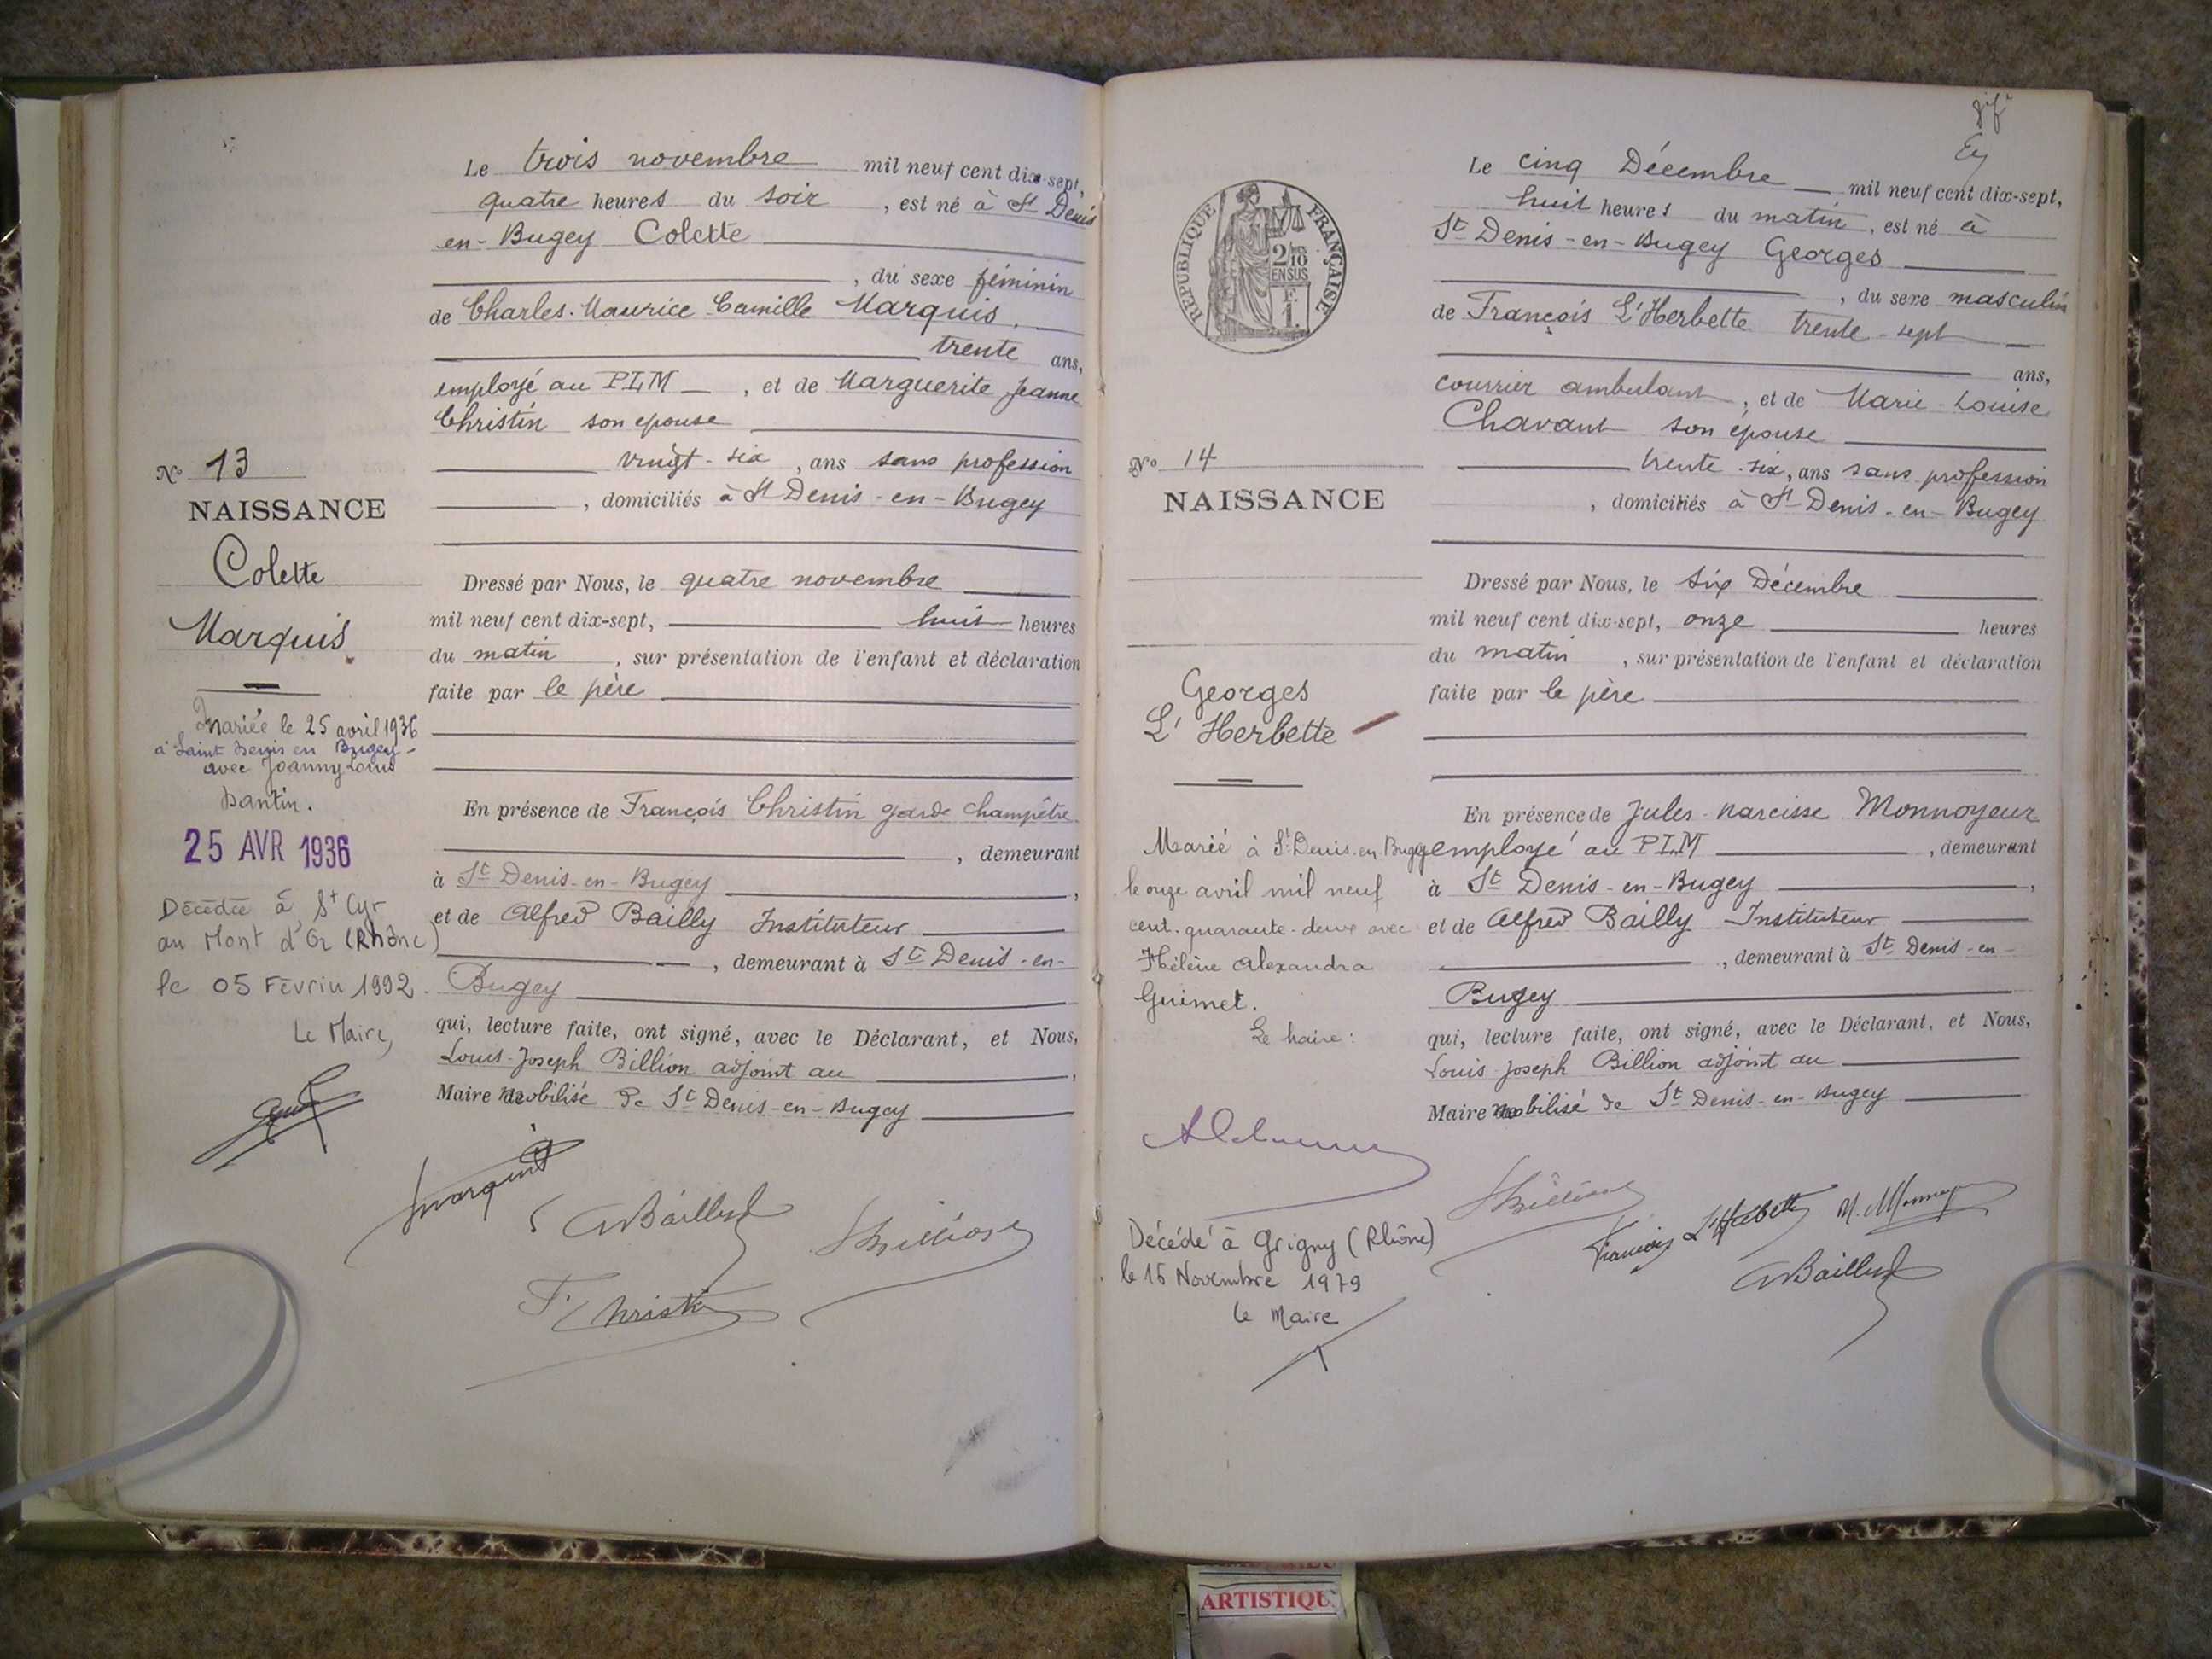 Le trois novembre mil neuf cent dix-sept,
quatre heures du soir, est né à St Denis
en-Bugey Colette
, du sexe féminin
de Charles-Maurice Camille Marquis,
trente ans,
employé au PLM, et de Marguerite Jeanne
Christin son épouse
vingt-six, ans sans profession
, domiciliés à St Denis-en-Bugey
Dressé par Nous, le quatre novembre
mil neuf cent dix-sept, huit heures
du matin, sur présentation de l'enfant et déclaration
faite par le père
En présence de François Christin garde champêtre
, demeurant
à St Denis-en-Bugey,
et de Alfred Bailly Instituteur
, demeurant à St Denis-en-
Bugey
qui, lecture faite, ont signé, avec le Déclarant, et Nous,
Louis-Joseph Billion adjoint au,
Maire mobilisé de St Denis-en-Bugey
Marquis
Bailly
Billion
F Christin
No 13
NAISSANCE
Colette
Marquis
Mariée le 25 avril 1936
à Saint Denis en Bugey-
avec Joanny Louis
Dantin.
25 AVR 1936
Décédée à St Cyr
au Mont d'Or (Rhône)
le 05 Février 1992.
Le Maire,
Le cinq Décembre mil neuf cent dix-sept,
huit heures du matin, est né à
St Denis-en-Bugey Georges
, du sexe masculin
de François L'Herbette trente-sept
ans,
courrier ambulant, et de Marie-Louise
Chavant son épouse
trente-six, ans sans profession
, domiciliés à St Denis-en-Bugey
Dressé par Nous, le six Décembre
mil neuf cent dix-sept, onze heures
du matin, sur présentation de l'enfant et déclaration
faite par le père
En présence de Jules-Narcisse Monnoyeur
employé au PLM, demeurant
à St Denis-en-Bugey,
et de Alfred Bailly Instituteur
, demeurant à St Denis-en-
Bugey
qui, lecture faite, ont signé, avec le Déclarant, et Nous,
Louis Joseph Billion adjoint au
Maire mobilisé de St Denis-en-Bugey
Billion
François L'Herbette
Bailly
RÉPUBLIQUE FRANÇAISE
2/10
EN SUS
F.
1.
No 14
NAISSANCE
Georges
L'Herbette
Marié à St Denis en Bugey
le onze avril mil neuf
cent-quarante-deux avec
Hélène Alexandra
Guimet.
Le Maire:
Décédé à Grigny (Rhône)
le 15 Novembre 1979
Le Maire
ARTISTIQU